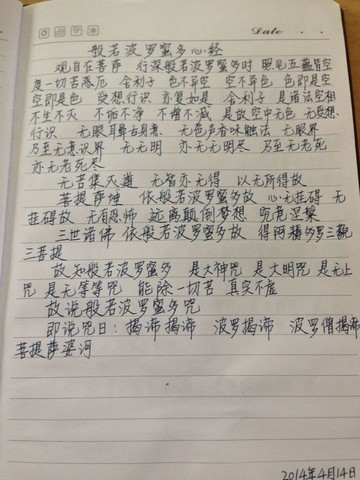 Date
般若波罗蜜多心经
观自在菩萨 行深般若波罗蜜多时 照见五蕴皆空
度一切苦悉厄 舍利子 色不异空 空不异色 色即是空
空即是色 受想行识 亦复如是 舍利子 是诸法空相
不生不灭 不垢不净 不增不减 是故空中无色 无受想
行识 无眼耳鼻舌身意 无色声香味触法 无眼界
乃至无意识界 无无明 亦无无明尽 乃至无老死
亦无老死尽
无苦集灭道 无智亦无得 以无所得故
菩提萨埵 依般若波罗蜜多故 心无挂碍 无
挂碍故 无有恐怖 远离颠倒梦想 究竟涅槃
三世诸佛 依般若波罗蜜多故 得阿耨多罗三藐
三菩提
故知般若波罗蜜多 是大神咒 是大明咒 是无上
咒 是无等等咒 能除一切苦 真实不虚
故说般若波罗蜜多咒
即说咒曰：揭谛揭谛 波罗揭谛 波罗僧揭谛
菩提萨婆诃
2014年4月14日